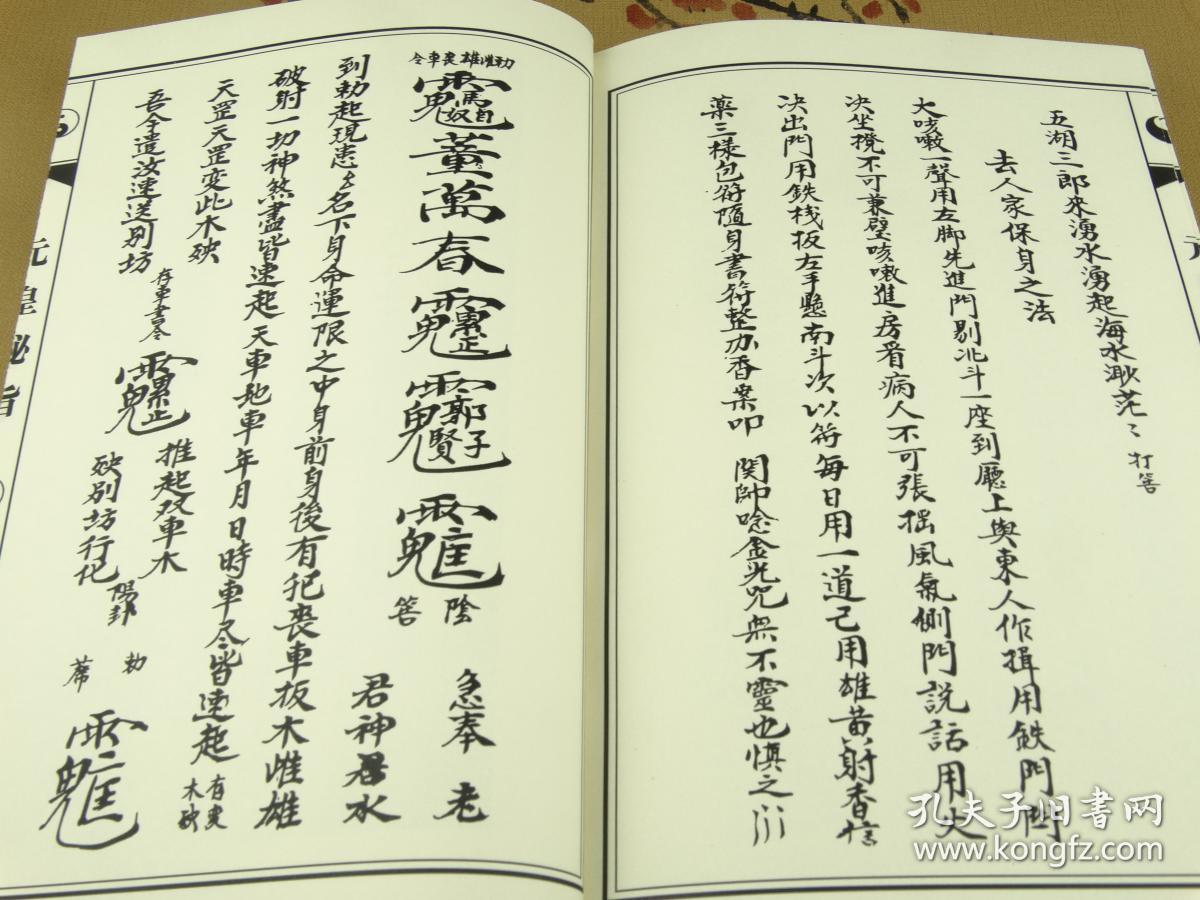 五湖三郎來湧水湧起海水渺茫〻打筶
去人家保身之法
大咳嗽一聲用左脚先進門剔北斗一座到廳上與東人作揖用鉄門閂
决坐櫈不可兼璧咳嗽進房看病人不可張揺風氣側門説話用火
决出門用鉄栈板左手懸南斗次以符每日用一道己用雄黄射香信
藥三樣包符随身書符整办香案叩 関帥唸金光咒無不靈也慎之
勅雌雄喪車令
董萬春 陰筶 急奉老
到勅起現患名下身命運限之中身前身後有犯喪車扳木雌雄 君神水
破射一切神煞盡皆速起天車地車年月日時車尽皆速起
天罡天罡变此木殃
吾今遣汝速送别坊 存車書令
推起双車木
殃别坊行化 陽卦
勅
元皇秘旨
孔夫子旧書网
www.kongfz.com